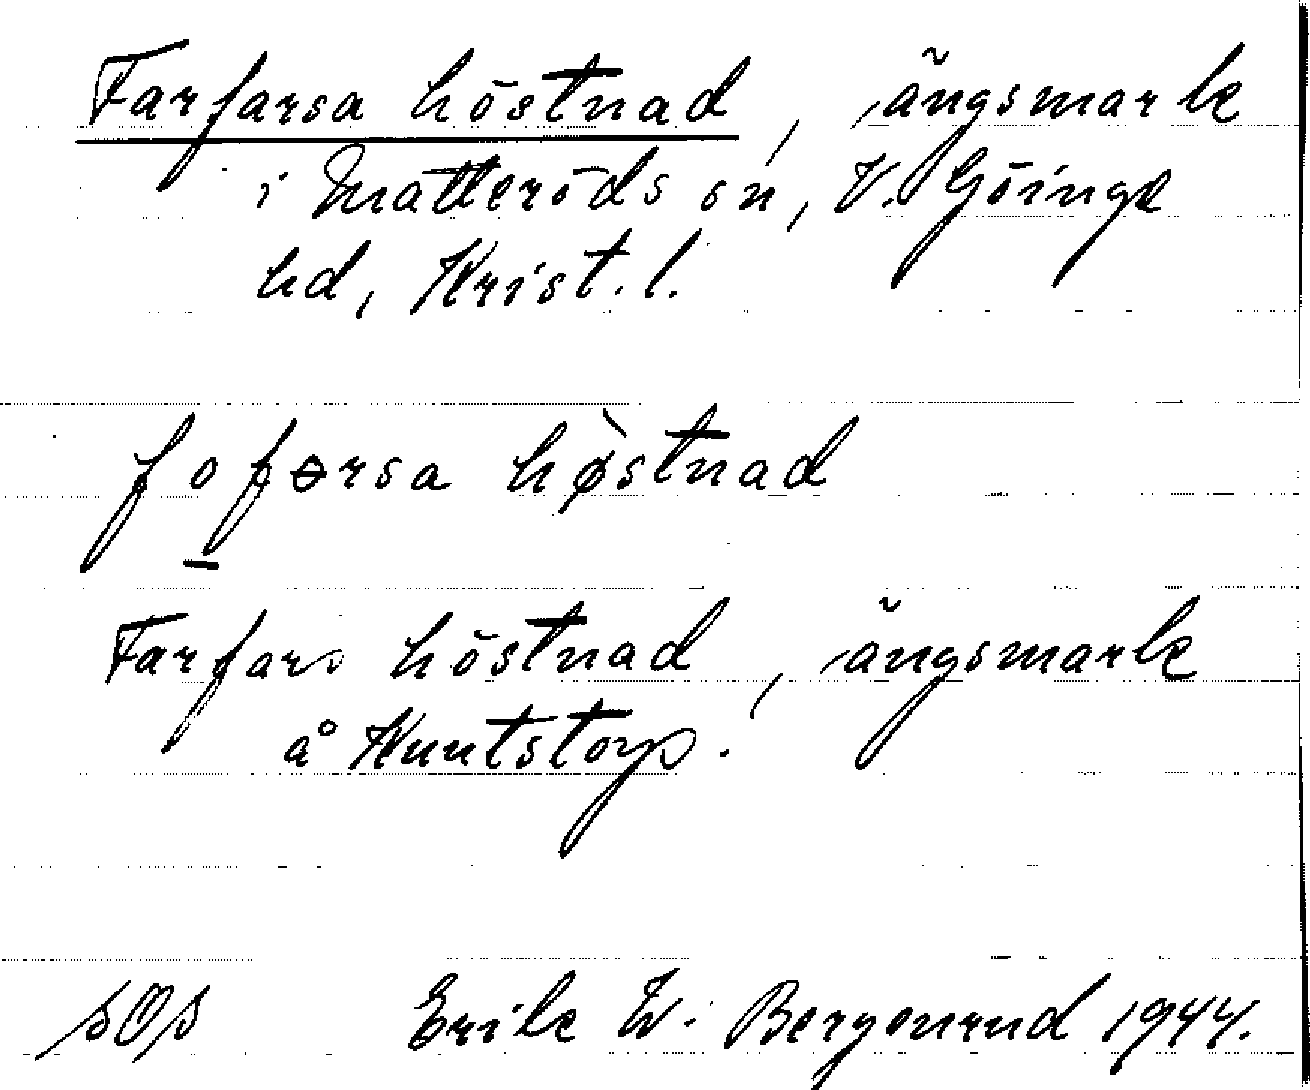 Farfarsa höstnad, ängsmark
i Matteröds sn, V. Göinge
hd, Krist. l.
fofɵrsa hø̀stnad
Farfars höstnad, ängsmark
å Kuntstorp.
sOs Erik W. Bergenrud 1944.